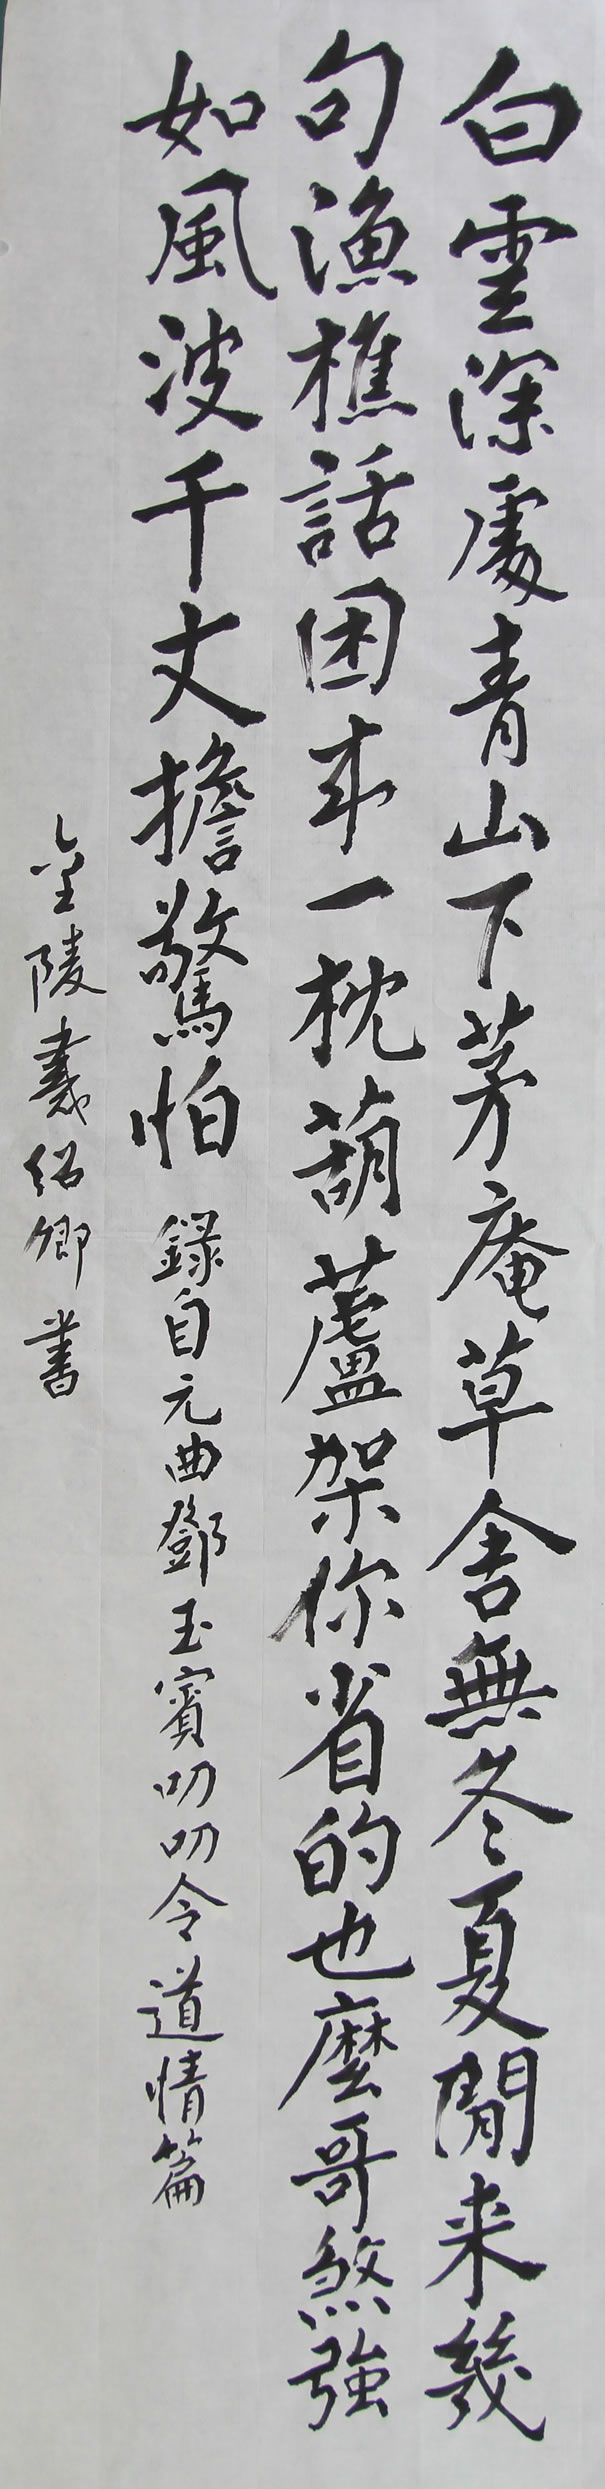 白雲深處青山下茅庵草舍無冬夏閒来幾
句漁樵話困来一枕葫蘆架你省的也麼哥煞強
如風波千丈擔驚怕
錄自元曲鄧玉賓叨叨令道情篇
金陵戴紹卿書